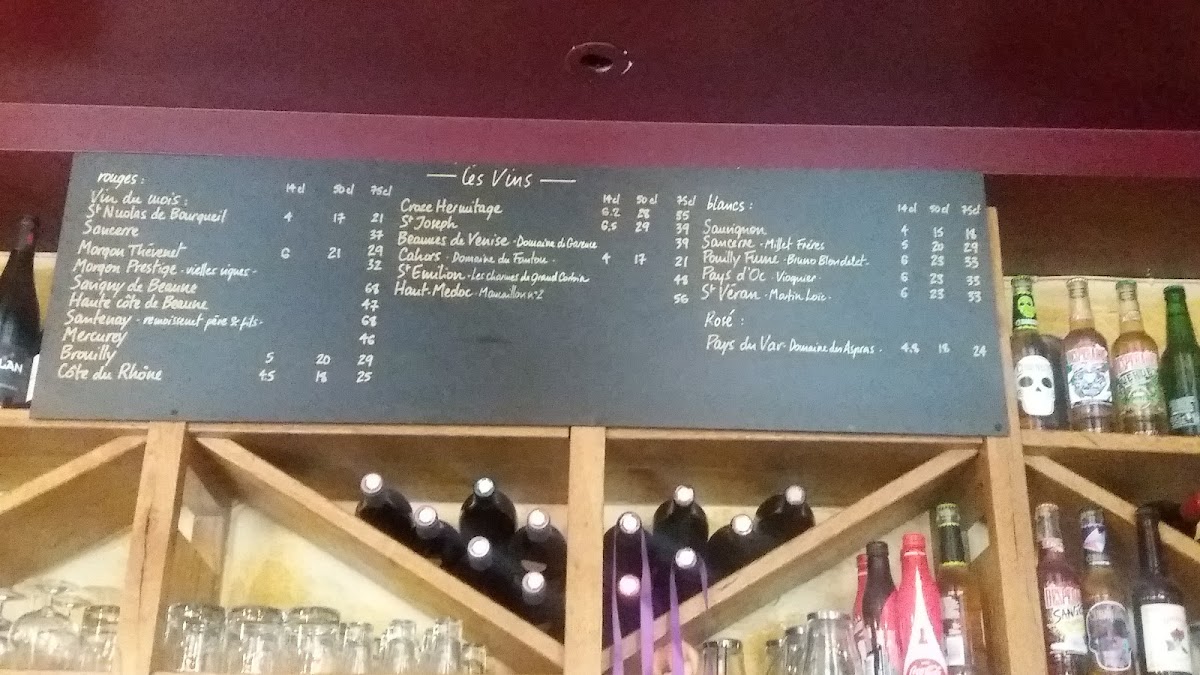 Les Vins
rouges :
14cl 50cl 75cl
Vin du mois :
St Nicolas de Bourgueil 4 17 21
Sancerre 37
Morgon Thévenet 6 21 29
Morgon Prestige - vielles vignes - 32
Savigny de Beaune 68
Haute côte de Beaune 47
Santenay - remoissenet père & fils - 68
Mercurey 46
Brouilly 5 20 29
Côte du Rhône 4.5 18 25
14cl 50cl 75cl
Croze Hermitage 6.2 28 35
St Joseph 6.5 29 39
Beaumes de Venise - Domaine de Garence 39
Cahors - Domaine du Fontou - 4 17 21
St Emilion - Les charmes du Grand Corbin 48
Haut-Medoc - Mamaillou n°2 56
blancs :
14cl 50cl 75cl
Sauvignon 4 15 18
Sancerre - Millet Frères 5 20 29
Pouilly Fumé - Bruno Blondelet - 6 23 33
Pays d'Oc - Viognier - 6 23 33
St Véran - Martin Loïc - 6 23 33
Rosé :
Pays du Var - Domaine des Aspras - 4.8 18 24